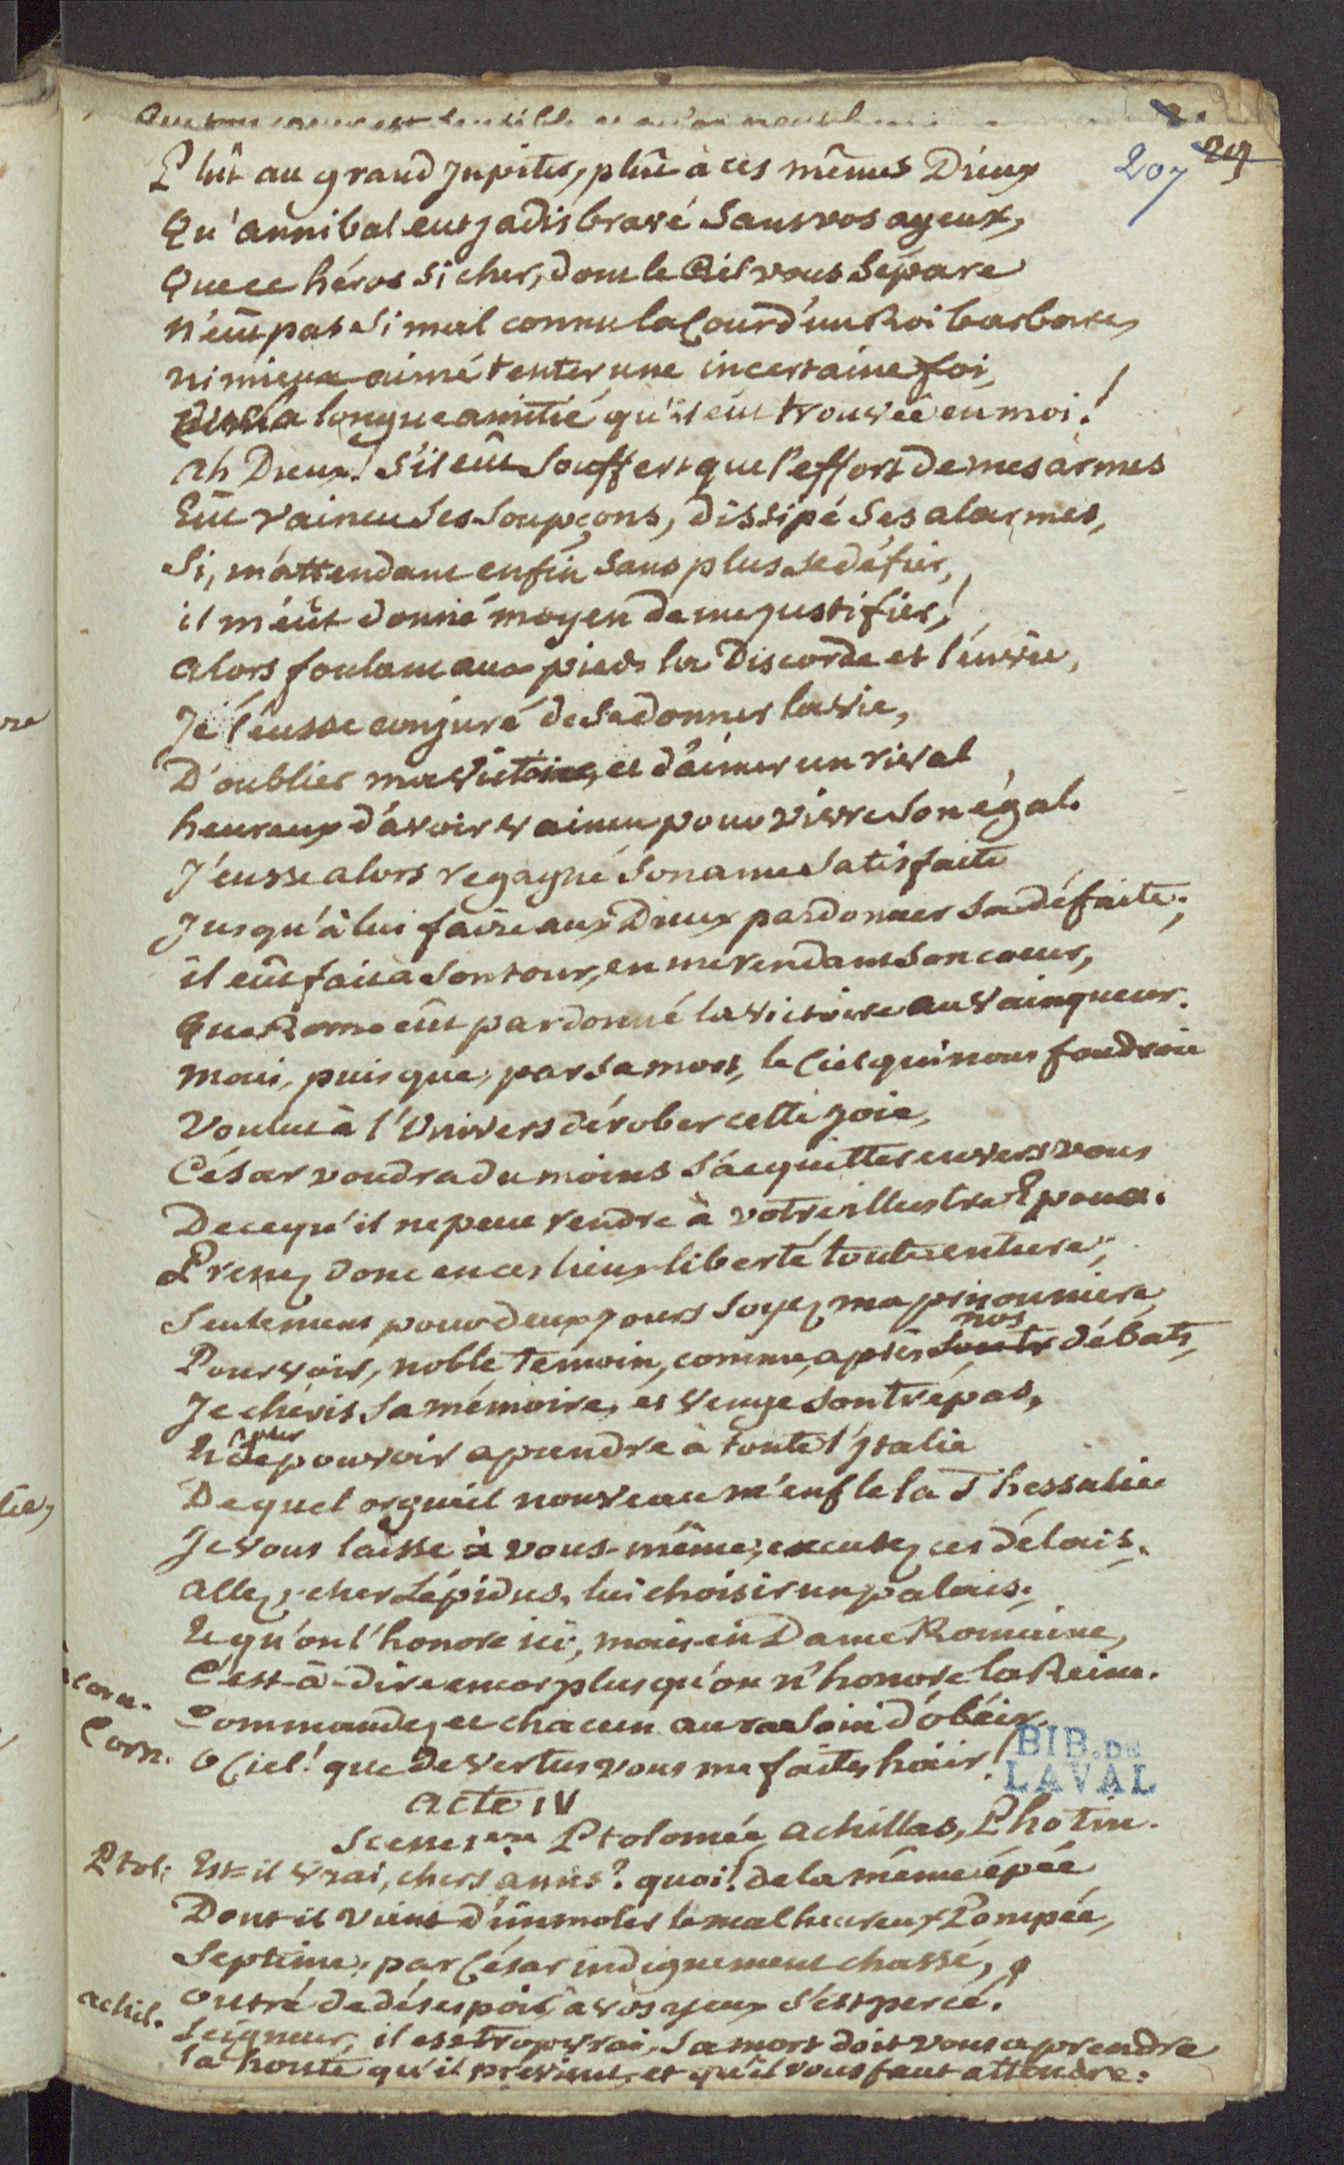 29
207
Plût au grand Jupiter, plût à ces mêmes Dieux
Qu'annibal eut jadis bravé sans vos ayeux,
Que ce héros si cher, dont le Ciel vous sépare
N'eût pas si mal connu la Cour d'un Roi barbare,
ni mieux aimé tenter une incertaine foi,
la longue amitié qu'il eût trouvée en moi!
ah Dieux! s'il eût souffert que l'effort de mes armes
Eût vaincu ses soupçons, dissipé ses alarmes,
Si, m'attendant enfin sans plus se défier,
il m'eût donné moyen de me justifier!
alors foulant aux pieds la Discorde et l'envie,
Je l'eusse conjuré de se donner la vie,
D'oublier ma victoire, et d'aimer un rival
heureux d'avoir vaincu pour vivre son égal.
J'eusse alors regagné son ame satisfaite
Jusqu'à lui faire aux Dieux pardonner sa défaite;
il eût fait à son tour, en me rendant son cœur,
Que Rome eût pardonné la victoire au vainqueur.
mais, puisque, par sa mort, le Ciel qui nous foudroie
Voulut à l'Univers dérober cette joie,
César voudra du moins s'acquitter envers vous
De ce qu'il ne peut rendre à votre illustre Epoux.
Prenez donc en ces lieux liberté toute entiere;
Seulement pour deux jours soyez ma prisonniere,
nos
Pour voir, noble témoin, comme, après débats,
Je chéris sa mémoire, et venge son trépas,
Et de pouvoir aprendre à toute l'Italie
De quel orgueil nouveau m'enfle la Thessalie
Je vous laisse à vous-même; excusez ces délais.
allez, cher Lépidus, lui choisir un palais;
Et qu'on l'honore ici, mais en Dame Romaine,
C'est-à-dire encor plus qu'on n'honore la Reine.
Commandez, et chacun aura soin d'obéir.
Corn. O Ciel! que de vertus vous me faites haïr!
BIB. DE LAVAL
acte IV
Scene 1ere Ptolomée, achillas, Photin.
Ptol. Est-il vrai, chers amis? quoi! de la même épée
Dont il vient d'immoler le malheureux Pompée,
Septime, par César indignement chassé,
outré de désespoir, à vos yeux s'est percé.
achil. Seigneur, il est trop vrai, sa mort doit vous aprendre
la honte qu'il prévient, et qu'il vous faut attendre.